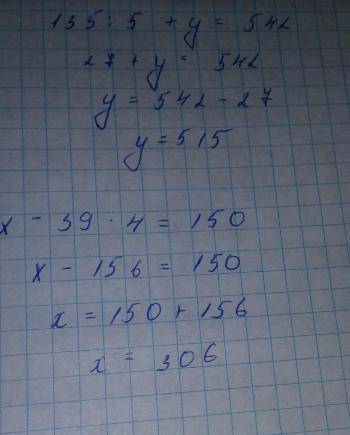 135 : 5 + y = 542
27 + y = 542
y = 542 - 27
y = 515
x - 39 · 4 = 150
x - 156 = 150
x = 150 + 156
x = 306